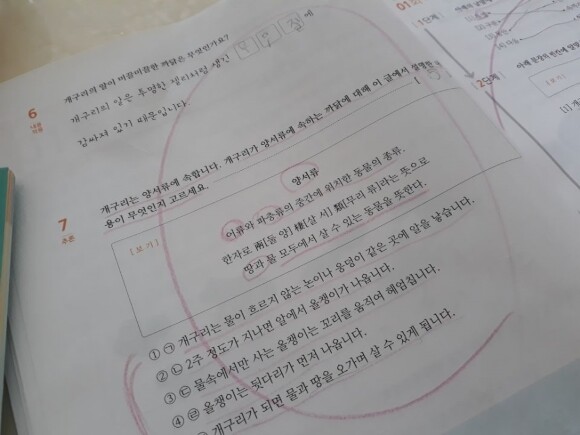 6
내용
적용
개구리의 알이 미끌미끌한 까닭은 무엇인가요?
개구리의 알은 투명한 젤리처럼 생긴 에
감싸져 있기 때문입니다.
7
추론
개구리는 양서류에 속합니다. 개구리가 양서류에 속하는 까닭에 대해 이 글에서 설명한
용이 무엇인지 고르세요.
[보기]
양서류
어류와 파충류의 중간에 위치한 동물의 종류.
한자로 兩[둘 양] 棲[살 서] 類[무리 류]라는 뜻으로
땅과 물 모두에서 살 수 있는 동물을 뜻한다.
① ㉠ 개구리는 물이 흐르지 않는 논이나 웅덩이 같은 곳에 알을 낳습니다.
② ㉡ 2주 정도가 지나면 알에서 올챙이가 나옵니다.
③ ㉢ 물속에서만 사는 올챙이는 꼬리를 움직여 헤엄칩니다.
④ ㉣ 올챙이는 뒷다리가 먼저 나옵니다.
개구리가 되면 물과 땅을 오가며 살 수 있게 됩니다.
01회
1단계
2단계
[보기]